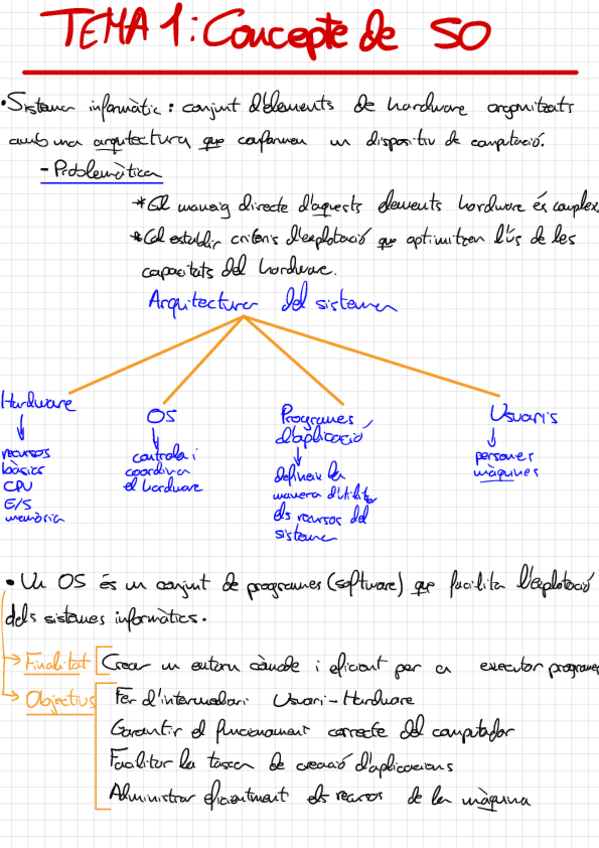 TEMA 1: Concepte de SO
• Sistema informàtic: conjunt d'elements de hardware organitzats
amb una arquitectura que conformen un dispositiu de computació.
- Problemàtica
* El maneig directe d'aquests elements hardware és complex
* Cal establir criteris d'explotació que optimitzen l'ús de les
capacitats del hardware.
Arquitectura del sistema
Hardware
recursos
bàsics
CPU
E/S
memòria
OS
controla i
coordina
el hardware
Programes
d'aplicació
defineix la
manera d'utilitz
els recursos del
sistema
Usuaris
persones
màquines
• Un OS és un conjunt de programes (software) que facilita l'explotació
dels sistemes informàtics.
→ Finalitat Crear un entorn còmode i eficient per a executar programes
→ Objectius Fer d'intermediari Usuari-Hardware
Garantir el funcionament correcte del computador
Facilitar la tasca de creació d'aplicacions
Administrar eficientment els recursos de la màquina